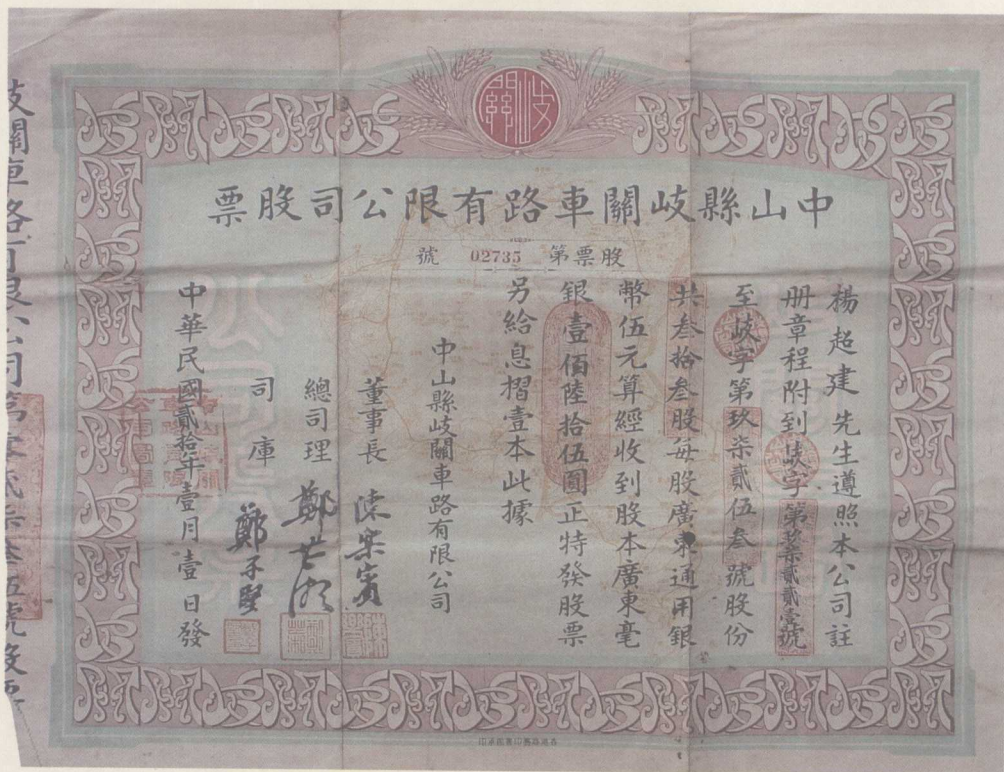 岐關
中山縣岐關車路有限公司股票
股票第 02735 號
楊超建先生遵照本公司註
册章程附到岐字第 貳貳壹號
至岐字第玖柒貳伍叁號股份
共叁拾叁股每股廣東通用銀
幣伍元算經收到股本廣東毫
銀壹佰陸拾伍圓正特發股票
另給息摺壹本此據
中山縣岐關車路有限公司
董事長
總司理 鄭芷湘
司庫 鄭子堅
中華民國貳拾年壹月壹日發
岐關車路有限公司第 貳柒叁伍號股票